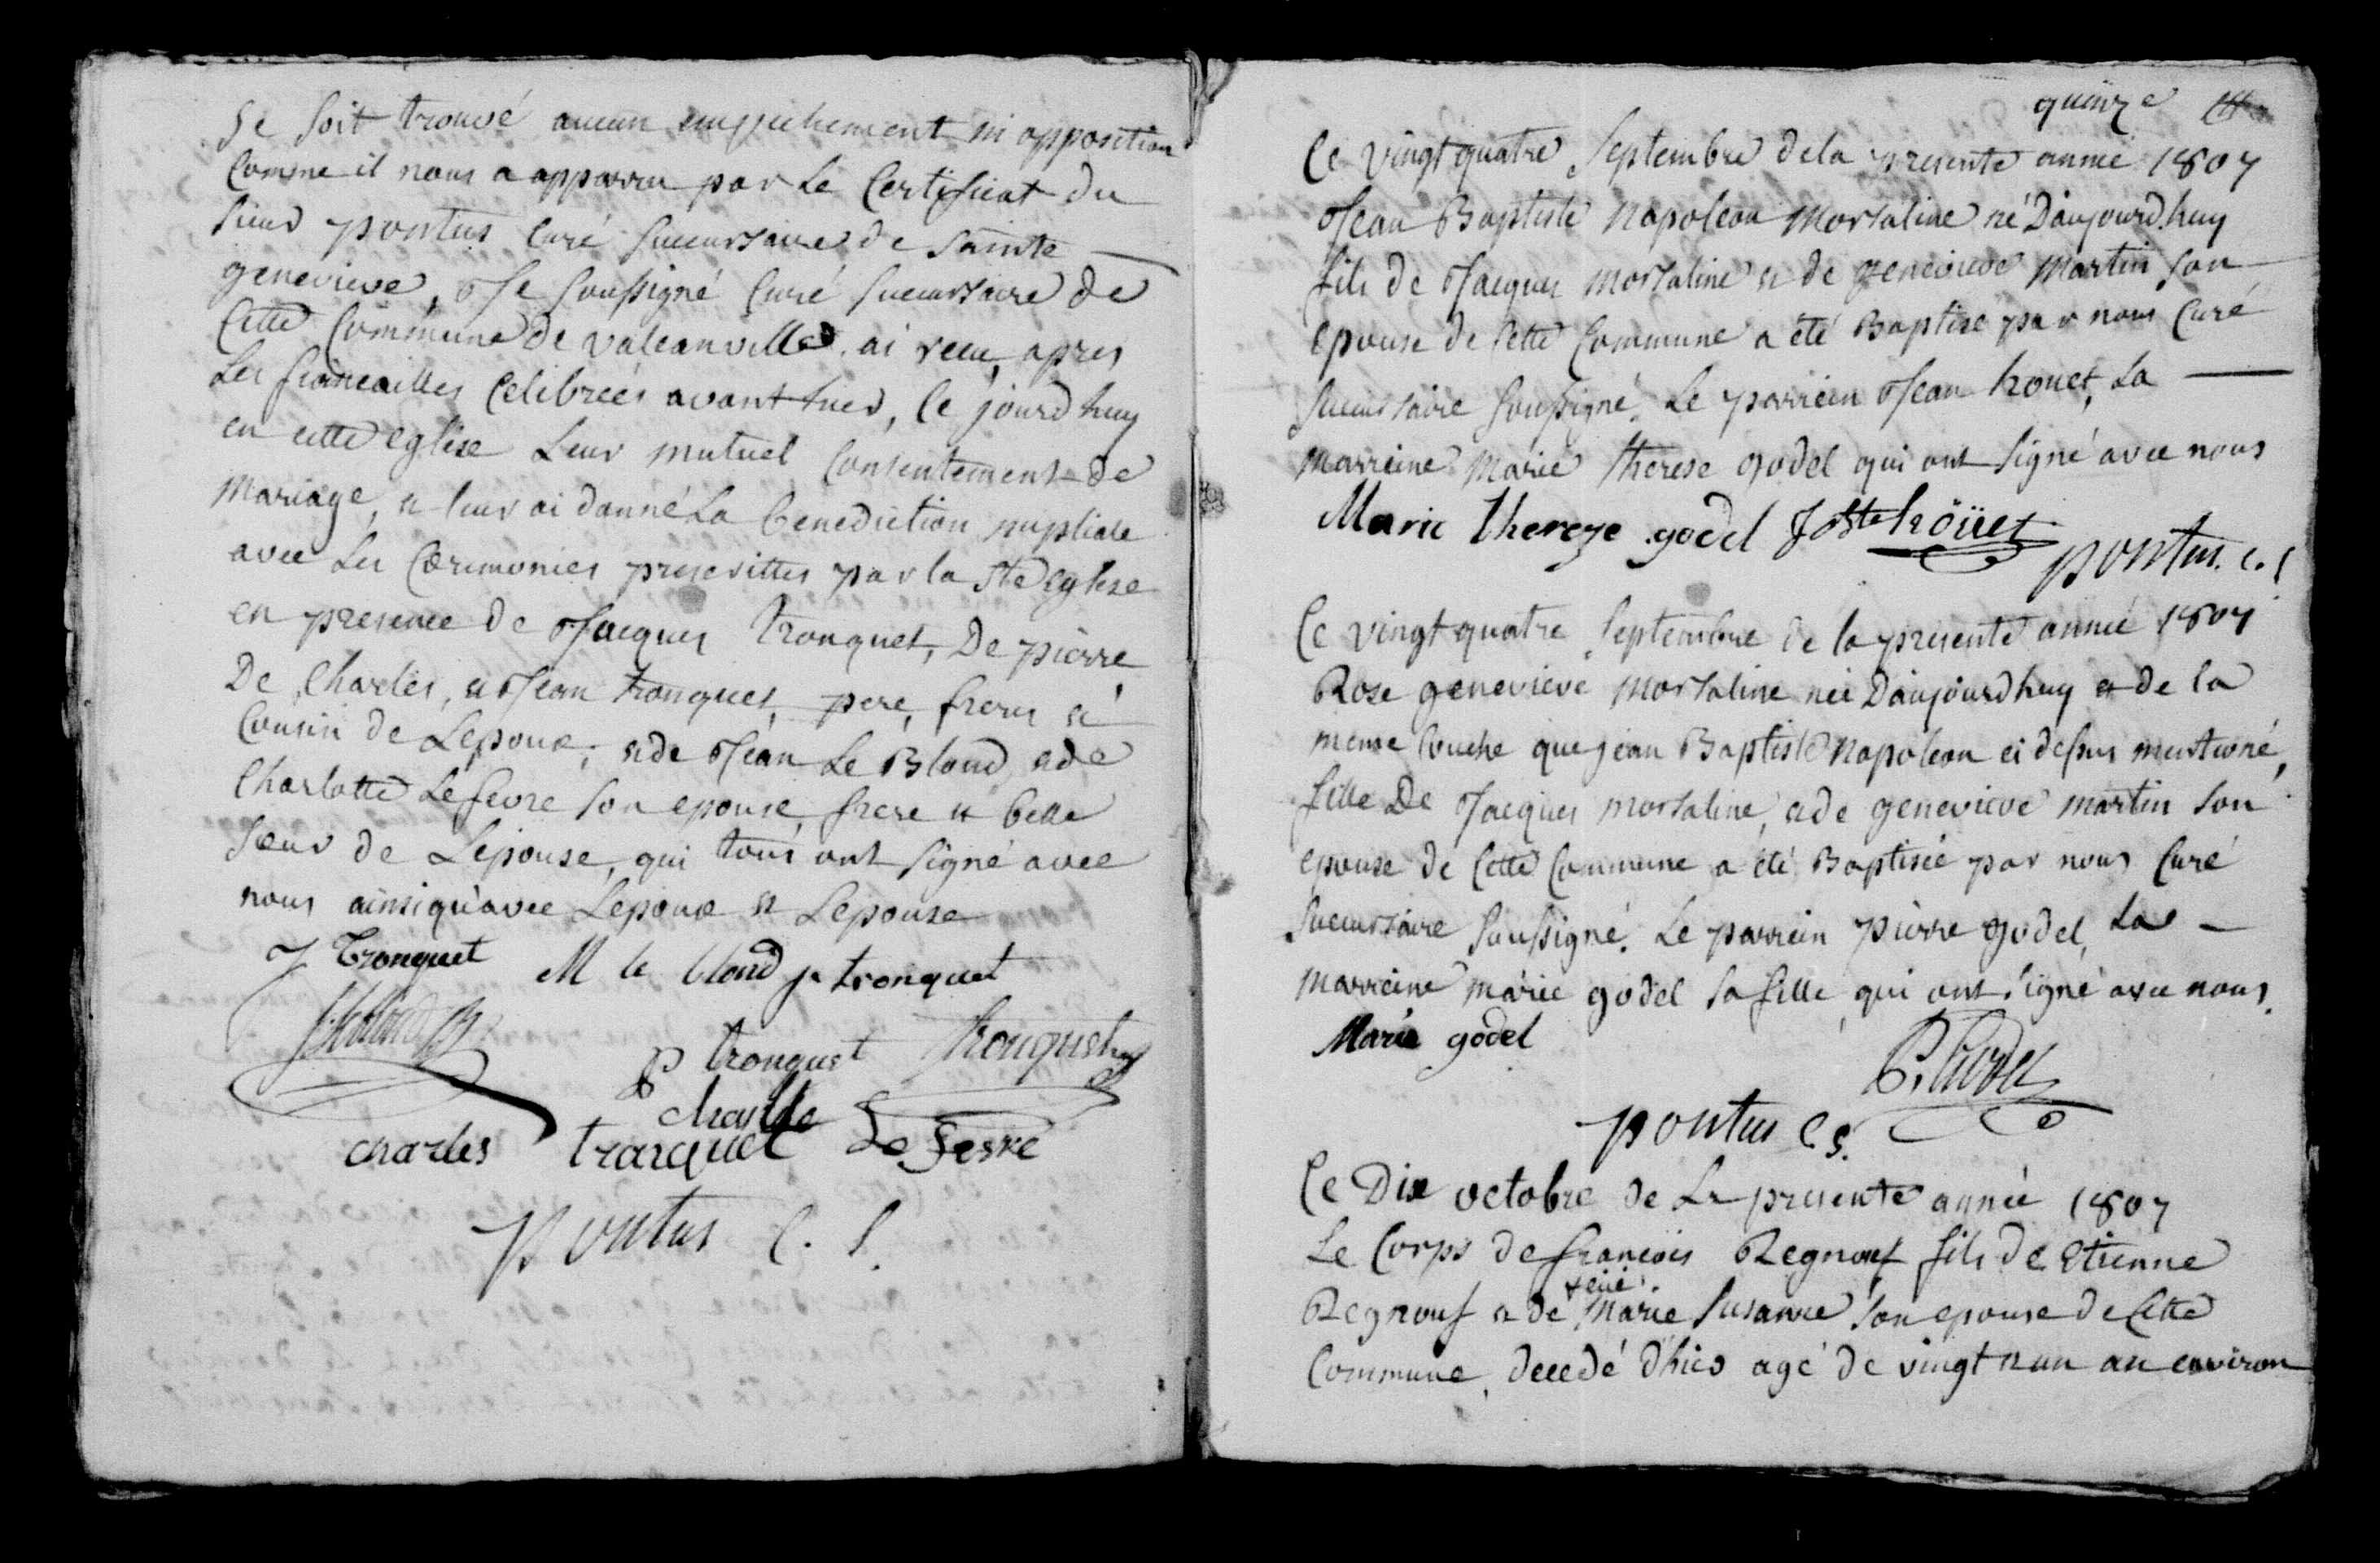 se soit trouvé aucun empechement ni opposition
Comme il nous a apparru par Le Certificat du
sieur pontus Curé succursaire de Sainte
genevieve, Je soussigné Curé succursaire de
Cette Commune de valcanville ai recu, apres
Les fiancailles Celebrées avant hier, Ce jourd huy
en cette eglise Leur mutuel Consentement de
Mariage, & leur ai donné La benediction nuptiale
avec Les Cærimonies prescrittes par la Ste eglise
en presence de Jacques tronquet, De pierre
De Charles, & Jean tronquet, pere, freres &
Cousin de Lepoux, & de Jean Le Blond & de
Charlotte Lefevre son epouse, frere & belle
sœur de Lepouse, qui tous ont signé avec
nous ainsi qu'avec Lepoux & Lepouse
J Tronquet M le blond j tronquet
p tronquet tronquet
charlotte
charles tranquet Le fevre
pontus C. S.
quinze
Ce vingt quatre Septembre de la presente année 1807
Jean Baptiste Napoleon Morsaline né D'aujourd.huy
fils de Jacques Morsaline & de genevieve Martin son
epouse de Cette Commune a été Baptisé par nous Curé
succursaire soussigné. Le parrein Jean houet, La
marreine Marie therese godel qui ont signé avec nous
Marie thereze godel J Bte hoüet
pontus. C. S
Ce vingt quatre Septembre de la presente année 1807
Rose genevieve Morsaline née D'aujourdhuy & de la
meme Couche que jean Baptiste Napoleon ci dessus mentioné,
fille De Jacques morsaline, & de genevieve martin son
epouse de Cette Commune a été Baptisée par nous Curé
succursaire soussigné. Le parrein pierre godel, La
marreine marie godel sa fille qui ont signé avec nous.
Marie godel
P. Godel
pontus C S.
Ce Dix octobre de La presente année 1807
Le Corps de francois Regnouf fils de Etienne
Regnouf & de Marie Susanne son epouse de Cette
Commune, decedé d'hier agé de vingt & un an environ